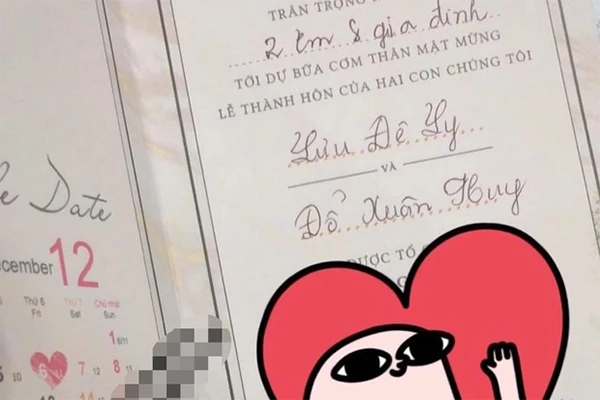 Date
cember 12
Thứ 6 Thứ 7 Chủ nhật
Fri Sat Sun
1
6 7 8
TRÂN TRỌNG
2 Em & gia đình
TỚI DỰ BỮA CƠM THÂN MẬT MỪNG
LỄ THÀNH HÔN CỦA HAI CON CHÚNG TÔI
Lưu Đê Ly
VÀ
Đổ Xuân Huy
ĐƯỢC TỔ